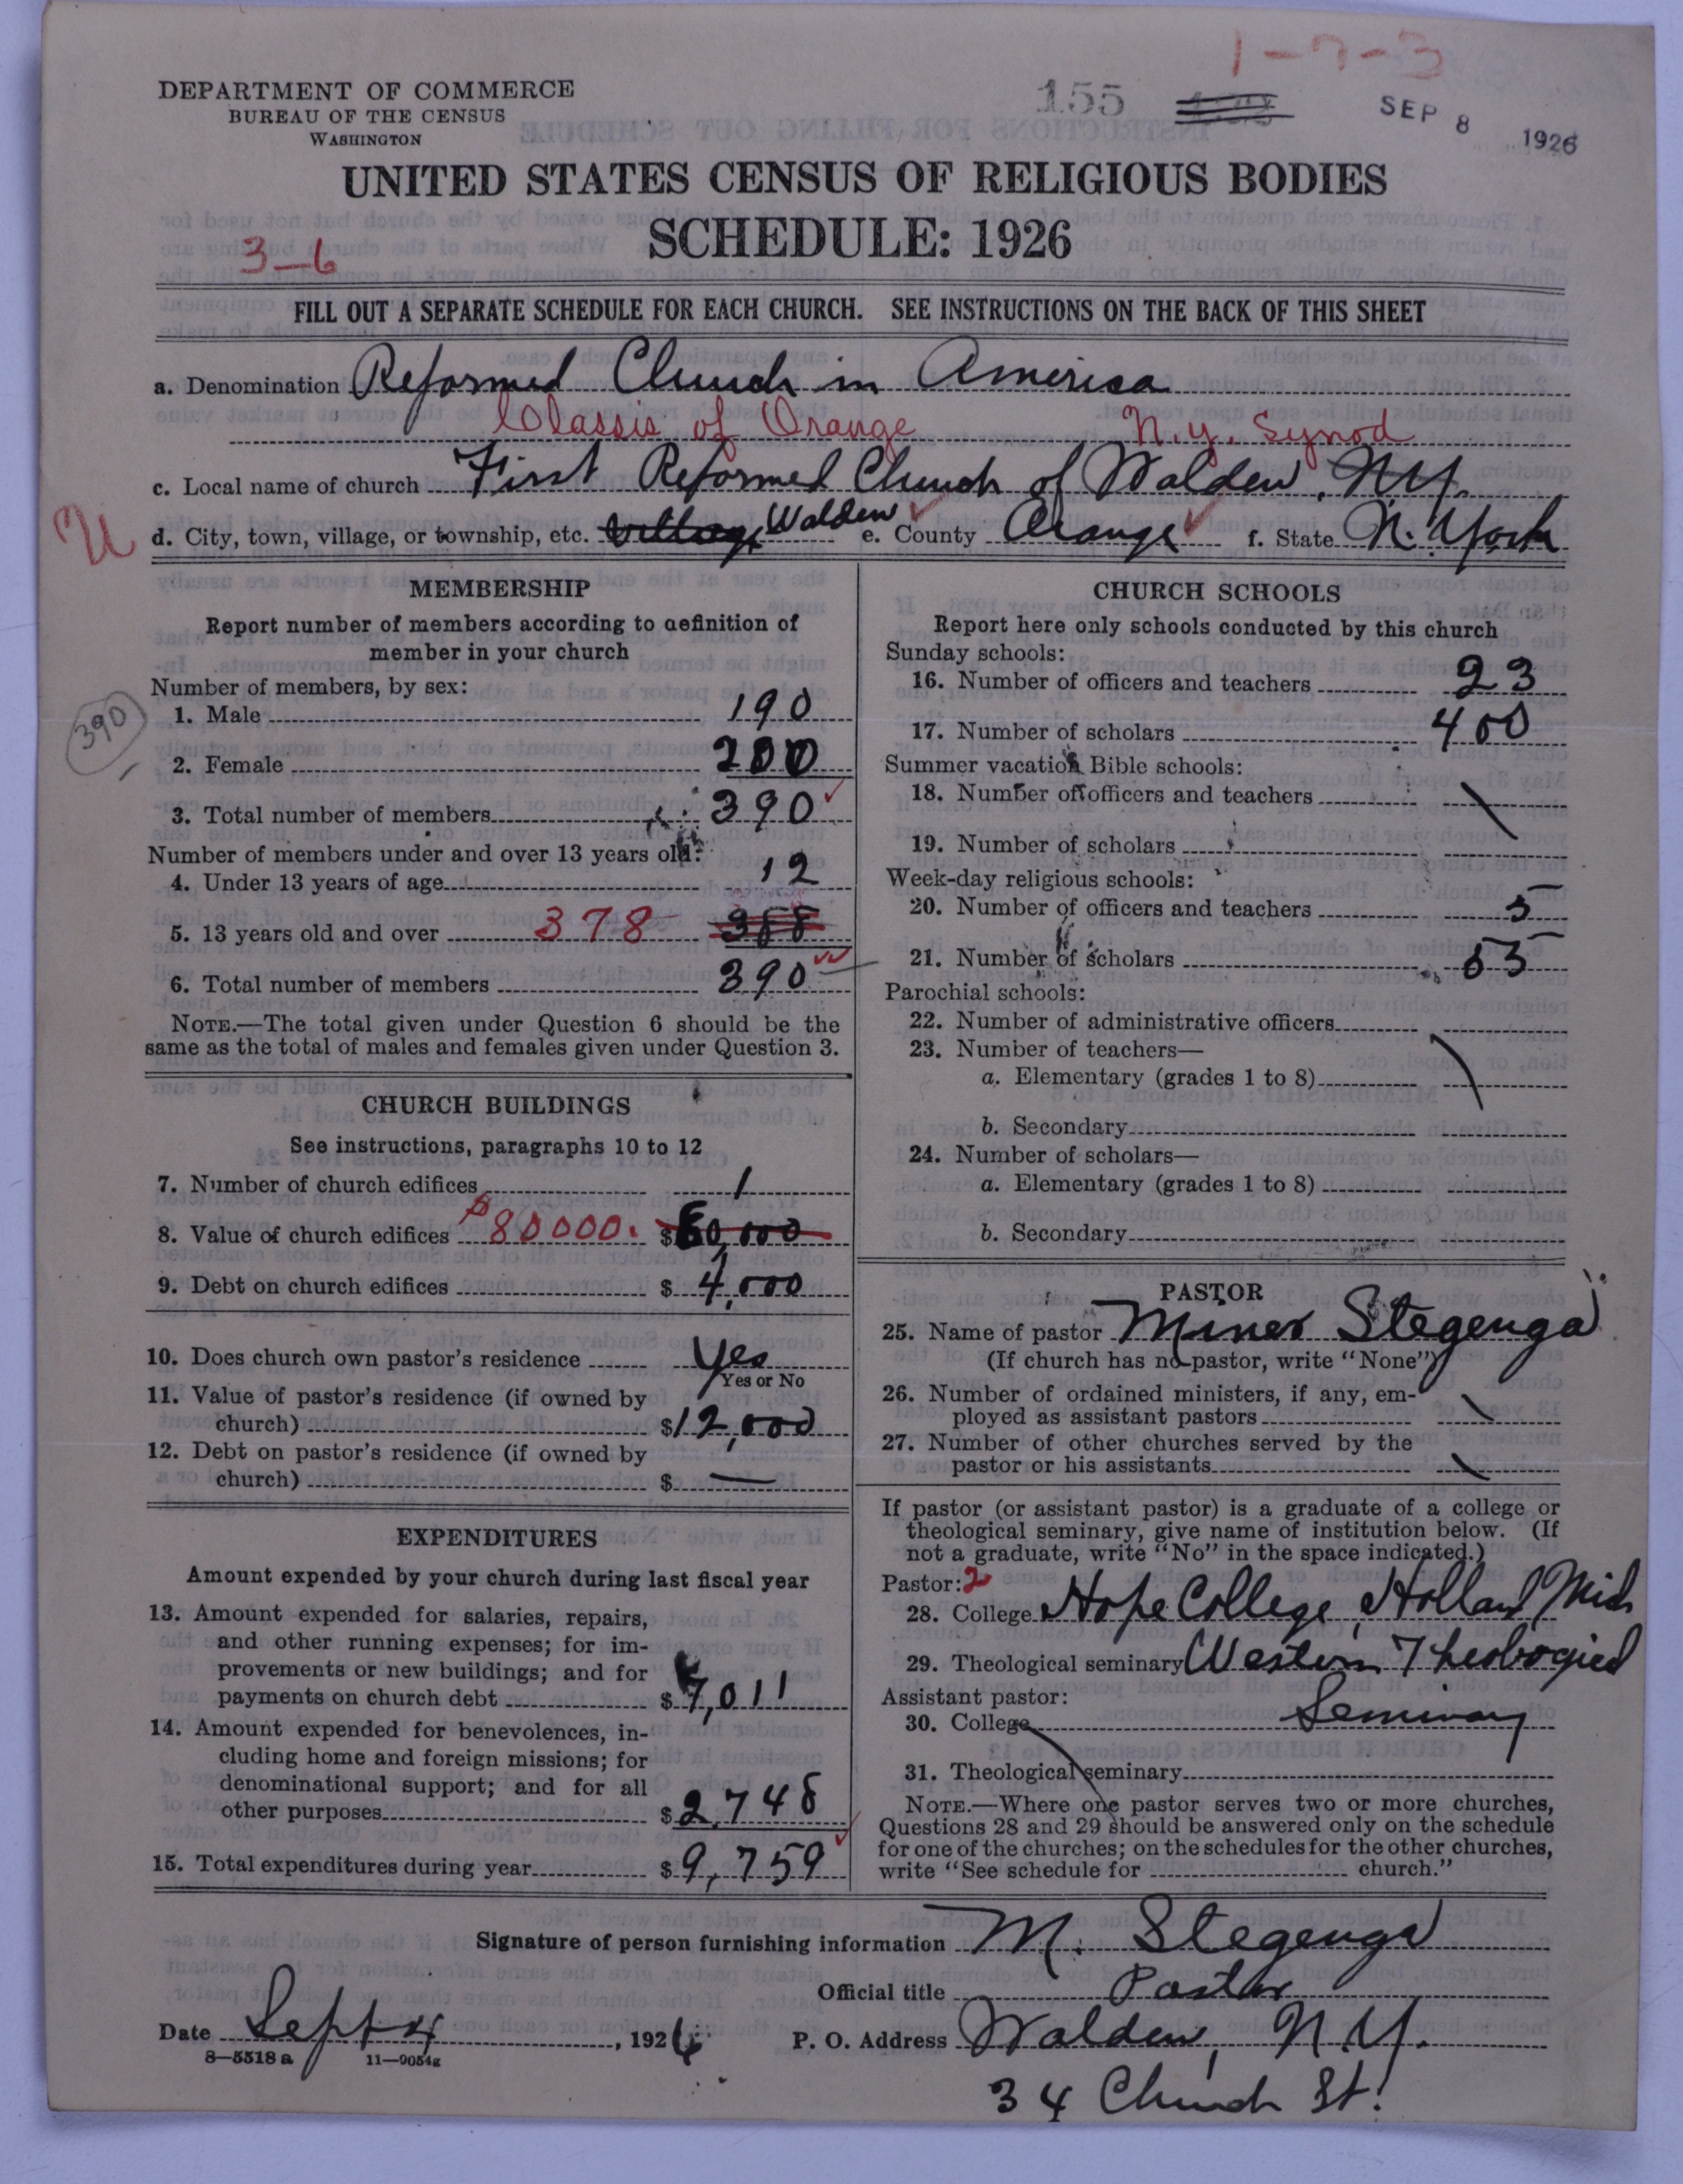 1-7-3
155
SEP 8 1926
DEPARTMENT OF COMMERCE
BUREAU OF THE CENSUS
WASHINGTON
UNITED STATES CENSUS OF RELIGIOUS BODIES
SCHEDULE: 1926
3-6
FILL OUT A SEPARATE SCHEDULE FOR EACH CHURCH. SEE INSTRUCTIONS ON THE BACK OF THIS SHEET
a. Denomination Reformed Church in America
Classis of Orange N.Y. Synod
c. Local name of church First Reformed Church of Walden, N.Y.
U
d. City, town, village, or township, etc. Village Walden e. County Orange f. State N. York
MEMBERSHIP
Report number of members according to definition of
member in your church
Number of members, by sex:
390
1. Male 190
2. Female 200
3. Total number of members 390
Number of members under and over 13 years old:
4. Under 13 years of age 12
5. 13 years old and over 378 388
6. Total number of members 390
NOTE.—The total given under Question 6 should be the
same as the total of males and females given under Question 3.
CHURCH BUILDINGS
See instructions, paragraphs 10 to 12
7. Number of church edifices 1
8. Value of church edifices $80000. $80,000
9. Debt on church edifices $ 4,000
10. Does church own pastor's residence Yes
Yes or No
11. Value of pastor's residence (if owned by
church) $12,000
12. Debt on pastor's residence (if owned by
church) $ —
EXPENDITURES
Amount expended by your church during last fiscal year
13. Amount expended for salaries, repairs,
and other running expenses; for im-
provements or new buildings; and for
payments on church debt $7,011
14. Amount expended for benevolences, in-
cluding home and foreign missions; for
denominational support; and for all
other purposes $2,748
15. Total expenditures during year $9,759
CHURCH SCHOOLS
Report here only schools conducted by this church
Sunday schools:
16. Number of officers and teachers 23
17. Number of scholars 400
Summer vacation Bible schools:
18. Number of officers and teachers
19. Number of scholars
Week-day religious schools:
20. Number of officers and teachers 5
21. Number of scholars 55
Parochial schools:
22. Number of administrative officers
23. Number of teachers—
a. Elementary (grades 1 to 8)
b. Secondary
24. Number of scholars—
a. Elementary (grades 1 to 8)
b. Secondary
PASTOR
25. Name of pastor Miner Stegenga
(If church has no pastor, write "None")
26. Number of ordained ministers, if any, em-
ployed as assistant pastors
27. Number of other churches served by the
pastor or his assistants
If pastor (or assistant pastor) is a graduate of a college or
theological seminary, give name of institution below. (If
not a graduate, write "No" in the space indicated.)
Pastor: 2
28. College Hope College, Holland Mich
29. Theological seminary Western Theological
Assistant pastor: Seminary
30. College
31. Theological seminary
NOTE.—Where one pastor serves two or more churches,
Questions 28 and 29 should be answered only on the schedule
for one of the churches; on the schedules for the other churches,
write "See schedule for church."
Signature of person furnishing information M. Stegenga
Official title Pastor
Date Sept 4, 1926 P. O. Address Walden, N.Y.
8—5518 a 11—9054g
34 Church St.